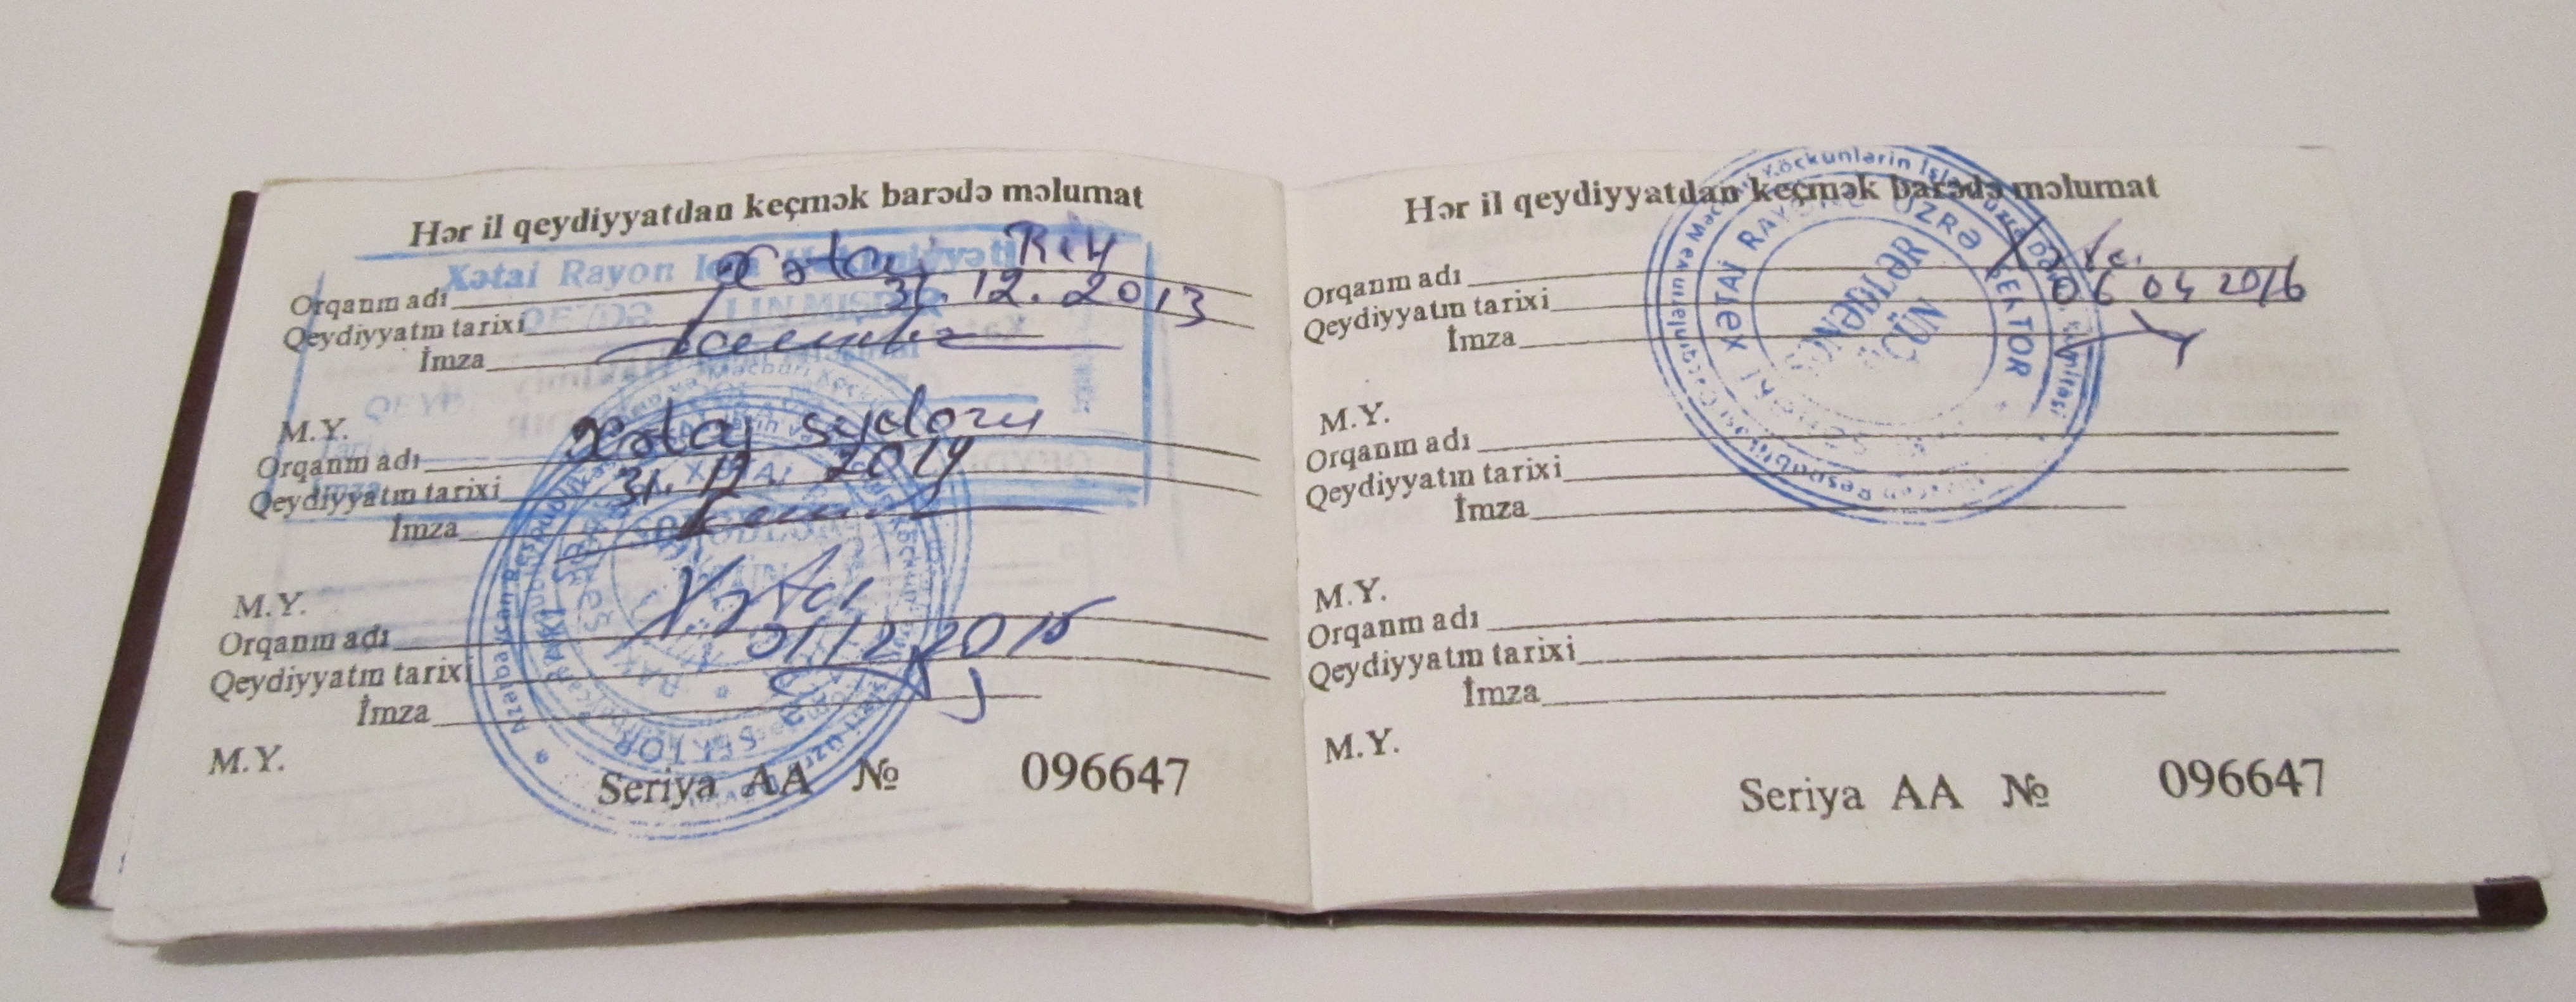 Hər il qeydiyyatdan keçmək barədə məlumat
Xətai Rayon
Orqanın adı Xətai RİH
Qeydiyyatın tarixi 31.12.2013
İmza
M.Y.
Orqanın adı Xətai
Qeydiyyatın tarixi 31.12.2014
İmza
M.Y.
Orqanın adı Xətai
Qeydiyyatın tarixi
İmza
M.Y.
SEKTOR
Seriya AA № 096647
Hər il qeydiyyatdan keçmək barədə məlumat
Orqanın adı
Qeydiyyatın tarixi 06 04 2016
İmza
XƏTAİ RAYONU ÜZRƏ SEKTOR
SƏNƏDLƏR
ÜÇÜN
M.Y.
Orqanın adı
Qeydiyyatın tarixi
İmza
M.Y.
Orqanın adı
Qeydiyyatın tarixi
İmza
M.Y.
Seriya AA № 096647